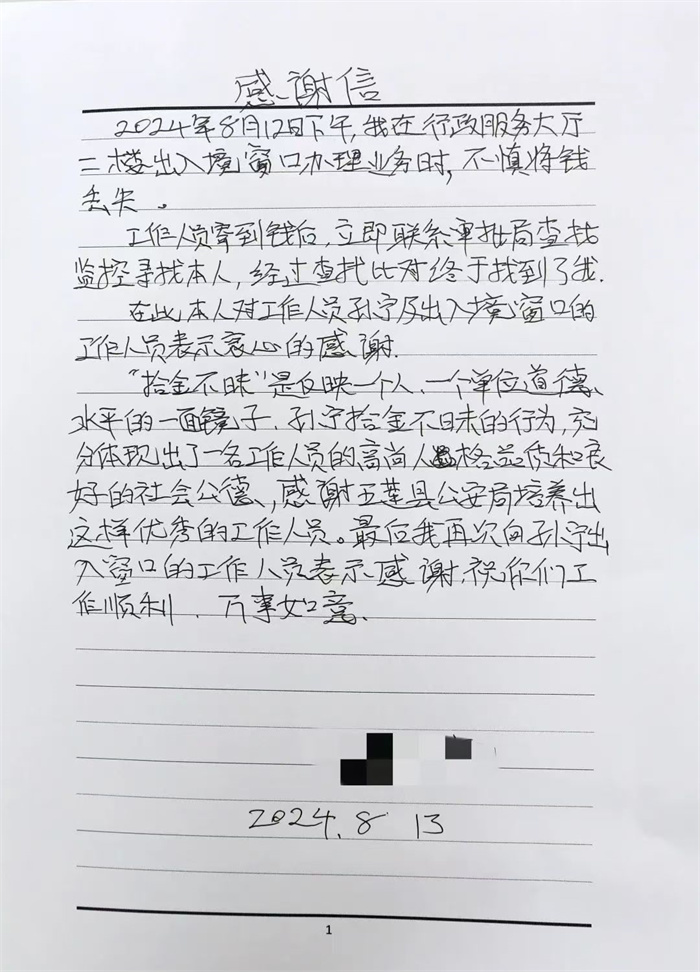 感谢信
2024年8月12日下午,我在行政服务大厅
二楼出入境窗口办理业务时,不慎将钱
丢失。
工作人员拿到钱后,立即联系审批局查找
监控寻找本人,经过查找比对终于找到了我.
在此本人对工作人员孙宁及出入境窗口的
工作人员表示衷心的感谢.
"拾金不昧"是反映一个人、一个单位道德、
水平的一面镜子.孙宁拾金不昧的行为,充
分体现出了一名工作人员的高尚人格品质和良
好的社会公德、,感谢五莲县公安局培养出
这样优秀的工作人员。最后我再次向孙宁出
入窗口的工作人员表示感谢,祝你们工
作顺利.万事如意.
2024.8 13
1